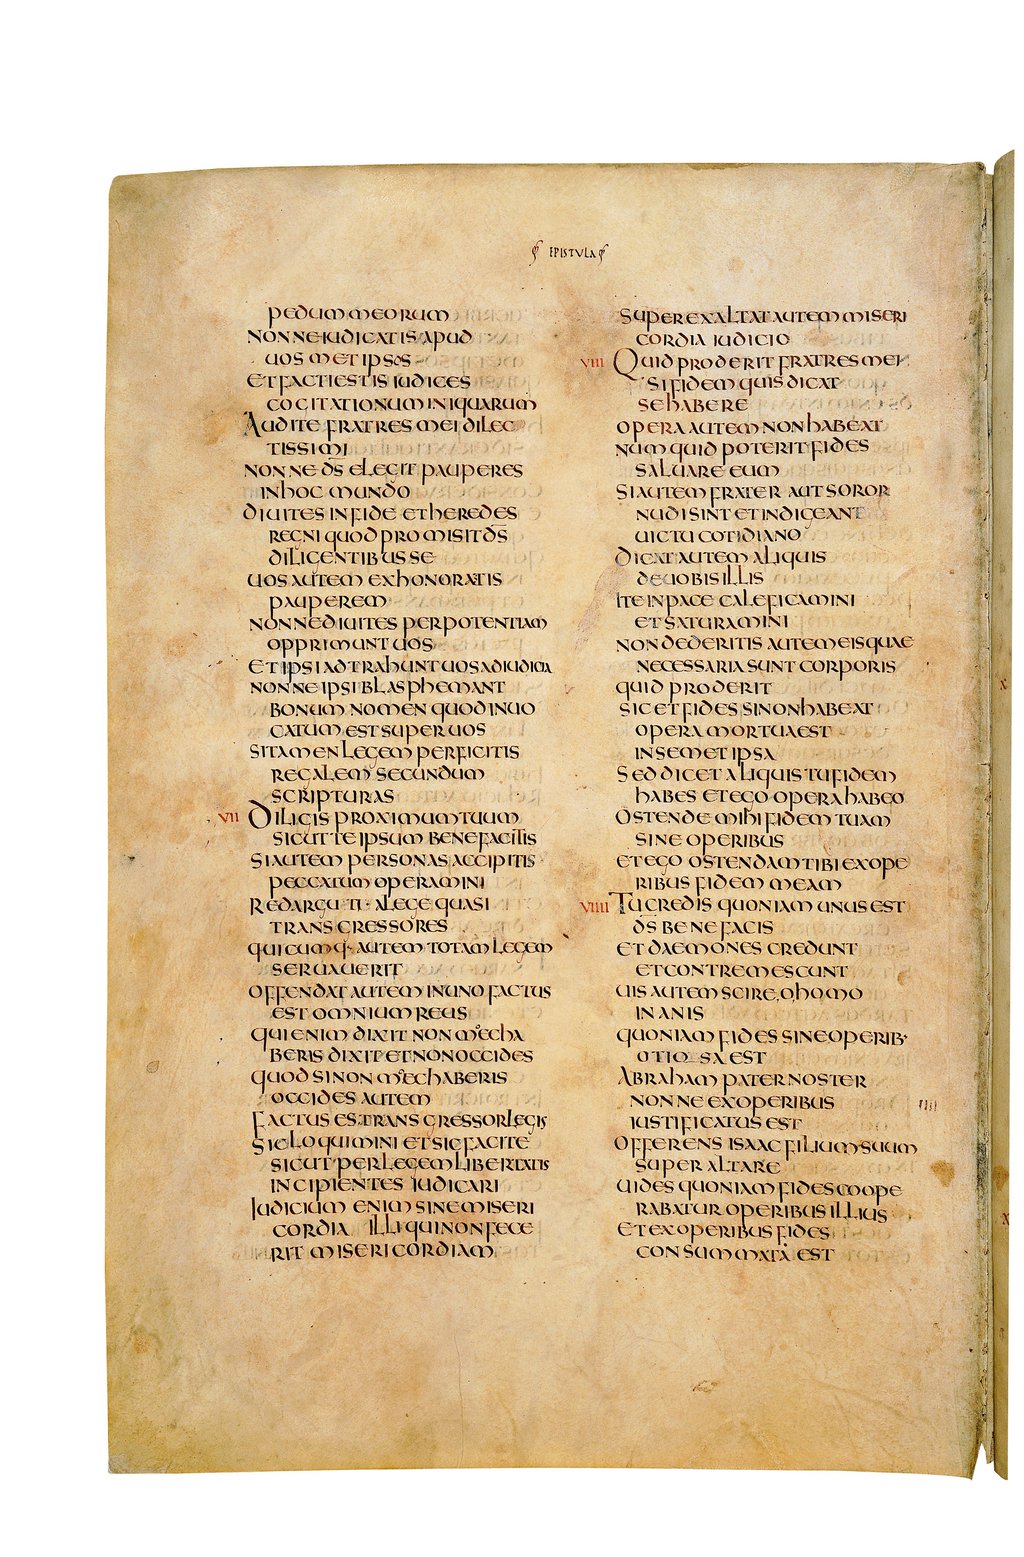 EPISTULA
pedum meorum
non ne iudicatis apud
uos met ipsos
et facti estis iudices
cogitationum iniquarum
Audite fratres mei dilec
tissimi
non ne d̅s̅ elegit pauperes
in hoc mundo
diuites in fide et heredes
regni quod promisit d̅s̅
diligentibus se
uos autem exhonoratis
pauperem
non ne diuites per potentiam
opprimunt uos
et ipsi adtrahunt uos ad iudicia
non ne ipsi blasphemant
bonum nomen quod inuo
catum est super uos
si tamen legem perficitis
regalem secundum
scripturas
VII Diligis proximum tuum
sicut te ipsum bene facitis
si autem personas accipitis
peccatum operamini
redarguti a lege quasi
transgressores
qui cumq· autem totam legem
seruauerit
offendat autem in uno factus
est omnium reus
qui enim dixit non moecha
beris dixit et non occides
quod si non moechaberis
occides autem
factus es transgressor legis
sic loquimini et sic facite
sicut per legem libertatis
incipientes iudicari
Iudicium enim sine miseri
cordia illi qui non fece
rit misericordiam
superexaltat autem miseri
cordia iudicio
VIII Quid proderit fratres mei
si fidem quis dicat
se habere
opera autem non habeat
num quid poterit fides
saluare eum
si autem frater aut soror
nudi sint et indigeant
uictu cotidiano
dicat autem aliquis
de uobis illis
ite in pace caleficamini
et saturamini
non dederitis autem eis quae
necessaria sunt corporis
quid proderit
sic et fides si non habeat
opera mortua est
in semet ipsa
sed dicet aliquis tu fidem
habes et ego opera habeo
ostende mihi fidem tuam
sine operibus
et ego ostendam tibi ex ope
ribus fidem meam
VIIII Tu credis quoniam unus est
d̅s̅ bene facis
et daemones credunt
et contremescunt
uis autem scire o homo
inanis
quoniam fides sine operib·
otiosa est
Abraham pater noster
non ne ex operibus
iustificatus est
offerens isaac filium suum
super altare
uides quoniam fides coope
rabatur operibus illius
et ex operibus fides
consummata est